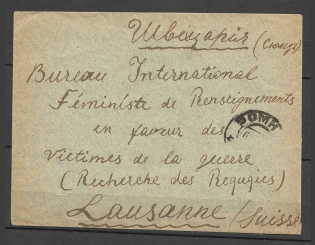 Швицарія (Suisse)
Bureau International
Féministe de Renseignements
en faveur des
Victimes de la guerre
(Recherche des Refugies)
Lausanne (Suisse)